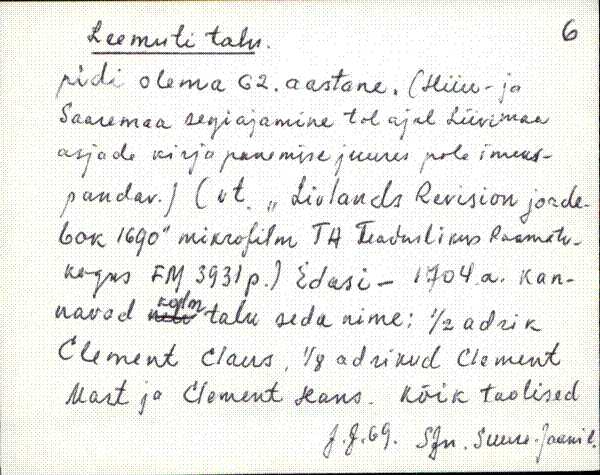 Leemuti talu. 6
pidi olema 62. aastane. (Hiiu- ja
Saaremaa segiajamine tol ajal Liivimaa
asjade kirjapanemise juures pole imeks-
pandav.) (vt. „Livlands Revision jorde-
bok 1690" mikrofilm TA Teaduslikus Raamatu-
kogus FM 3931 p.) Edasi – 1704.a. kan-
navad kolm talu seda nime: 1/2 adrik
Clement Claus, 1/8 adrikud Clement
Mart ja Clement Hans. Kõik taolised
J.J.69. Sjn. Suure-Jaanil.